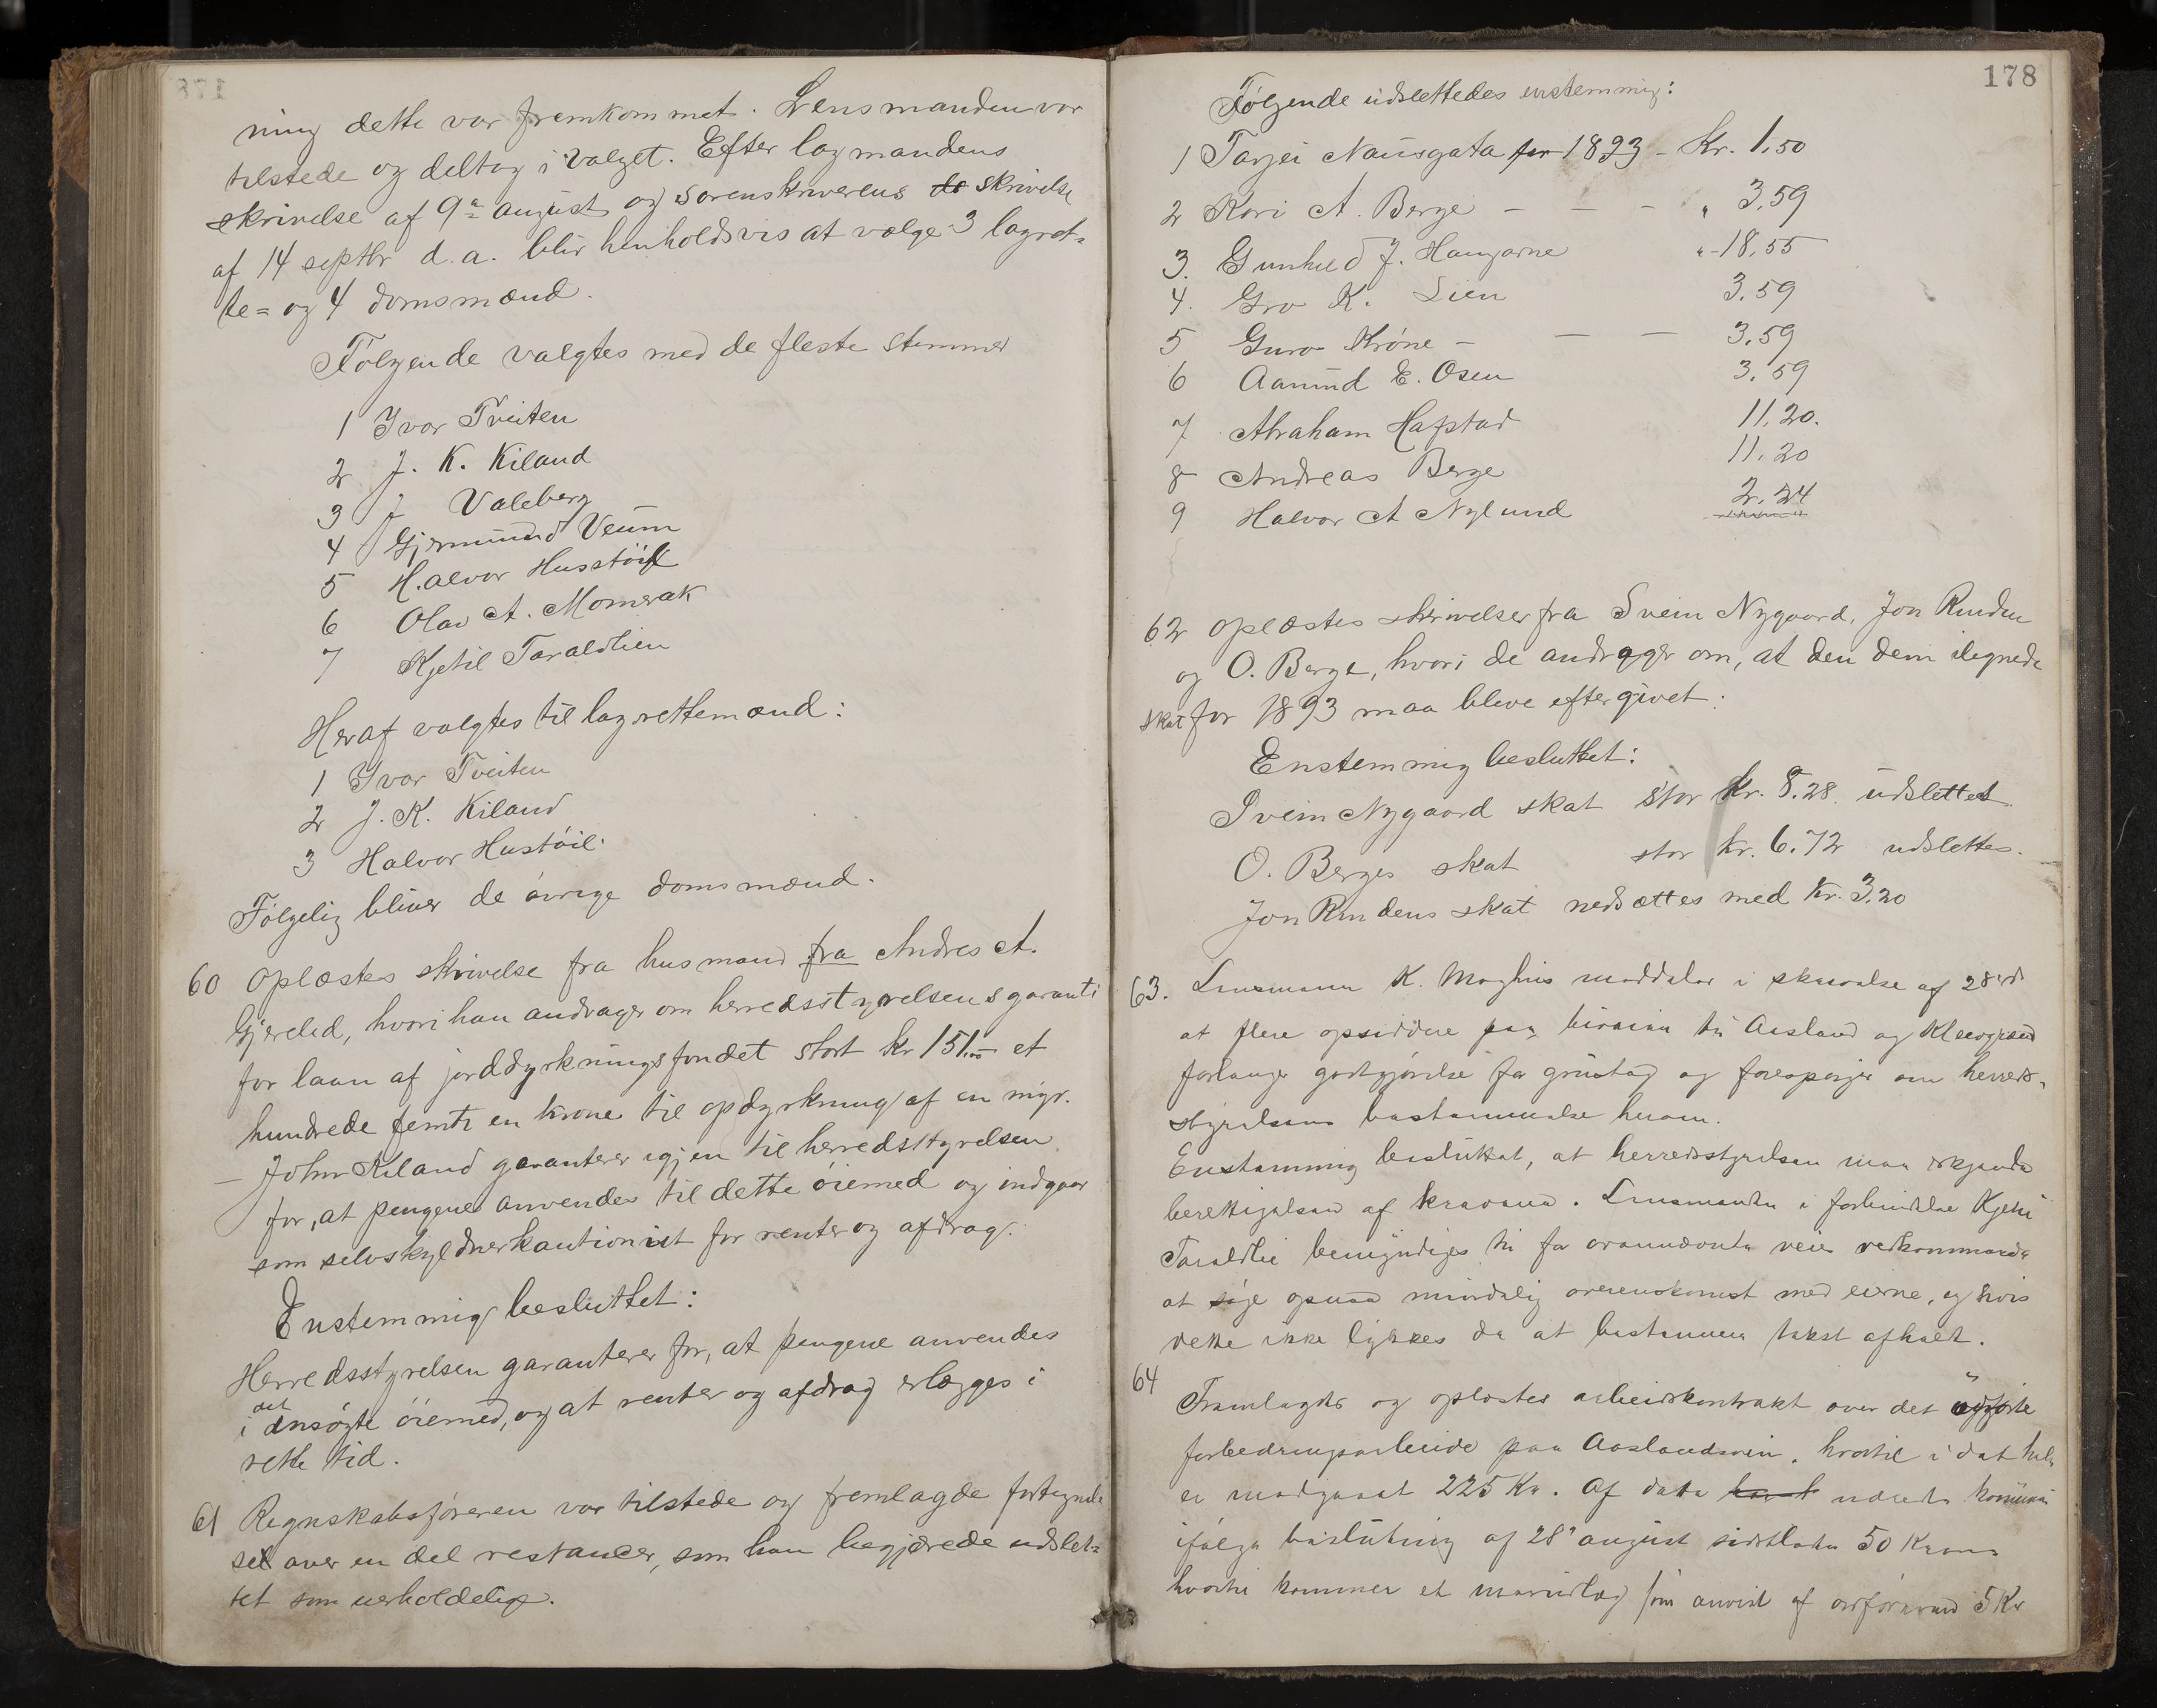 ning dette var fremkommet. Lensmanden var
tilstede og deltog i valget. Efter lagmandens
skrivelse af 9de august og sorenskriverens do skrivelse
af 14 septbr d.a. blir henholdsvis at vælge 3 lagret-
te= og 4 domsmænd.
Følgende valgtes med de fleste stemmer
1 Ivar Tveiten
2 J. K. Kiland
3 J Valeberg
4 Gjermund Veum
5 Halvor Husstöil
6 Olav A. Momrak
7 Kjetil Taraldlien
Heraf valgtes til lagrettemænd:
1 Ivar Tveiten
2 J. K. Kiland
3 Halvor Hustöil.
Følgelig bliver de øvrige domsmænd.
60 Oplæstes skrivelse fra husmand fra Andres A.
Gjereld, hvori han andrager om herredsstyrelsens garanti
for laan af jorddyrkningsfondet stort kr 151.00 et
hundrede femti en krone til opdyrkning af en myr.
– John Kiland garanterer igjen til herredsstyrelsen
for, at pengene anvendes til dette øiemed og indgaar
som selvskyldnerkautionist for renter og afdrag.
Enstemmig besluttet:
Herredsstyrelsen garanterer for, at pengene anvendes
i det ansøgte øiemed, og at renter og afdrag erlægges i
rette tid.
61 Regnskabsføreren var tilstede og fremlagde fortegnel
sel over en del restancer, som han begjærede udslet=
tet som uerholdelige.
178
Følgende udslettedes enstemmig:
1 Tarjei Nausgata for 1893 – Kr. 1,50
2 Kari A. Berge – – – " 3,59
3. Gunhild J. Haugarne "-18,55
4. Gro K. Lien 3,59
5 Guro Króne – – – 3,59
6 Aamund E. Osen 3,59
7 Abraham Hafstad 11,20.
8 Andreas Berge 11,20
9 Halvor A Nylund 2,24
62 Oplæstes skrivelser fra Svein Nygaard, Jon Rinden
og O. Berge, hvori de andrager om, at den dem ilignede
skat for 1893 maa blive eftergivet:
Enstemmig besluttet:
Svein Nygaard skat stor Kr. 8.28 udslettet.
O. Berges skat stor kr. 6.72 udslettes.
Jon Rindens skat nedsættes med Kr. 3,20
63. Lensmann K. meddeler i skrivelse af 28
at flere opsiddere paa veien til Aasland og
forlanger godtgjørelse for grustag og forespørger om herreds-
styrelsens bestemmelse herom.
Enstemmig besluttet, at herredsstyrelsen maa erkjende
berettigelsen af kravene. Lensmanden i forbindelse Kjetil
Taraldlie bemyndiges til for ovennævnte veies vedkommende
at søge opnaa mindelig overenskomst med eierne, og hvis
dette ikke lykkes da at bestemme takst afholdt.
64
Fremlagdes og oplæstes arbeidskontrakt over det udførte
forbedringsarbeide paa Aaslandsvein, hvortil i det hele
er medgaaet 225 Kr. Af dette udreder kommunen
ifølge beslutning af 28' august sidstleden 50 Kroner
hvortil kommer et som anvist af ordføreren 5 Kr